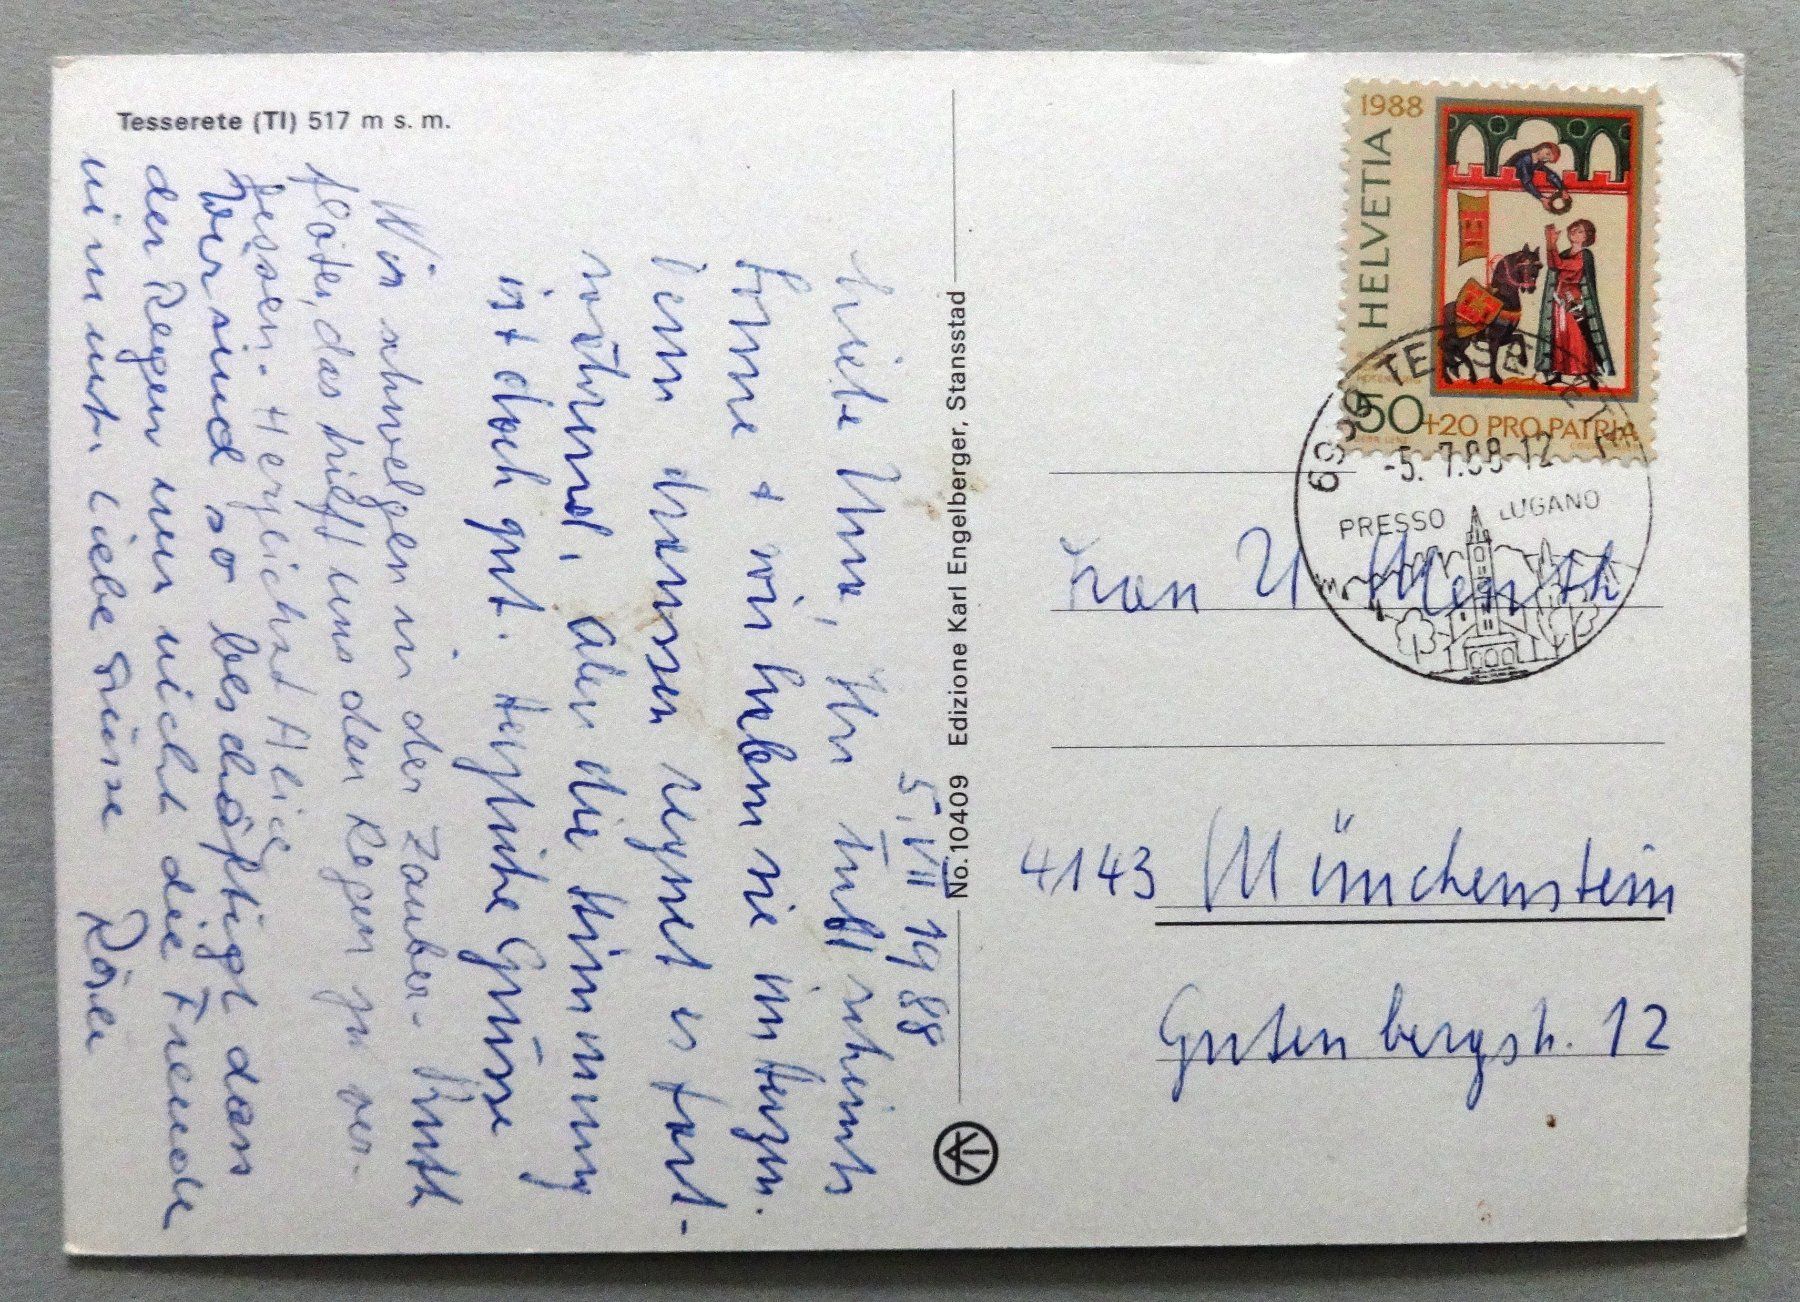 Tesserete (TI) 517 m s. m.
5. VII 1988
Liebe Ursa, Ihr Tuff scheint
Sonne + wir haben sie im Herzen.
Denn draussen regnet es fort-
während, aber die Stimmung
ist doch gut. Herzliche Grüsse
Ruth
Wir schwelgen in der Zauber-
flöte, das hilft uns den Regen zu ver-
gessen. Herzlichst Alice
Wir sind so beschäftigt dass
der Regen uns nicht die Freude
nimmt. Liebe Grüsse Rösli
No. 10409 Edizione Karl Engelberger, Stansstad
1988
HELVETIA
50+20 PRO PATRIA
6950 TESSERETE
-5. 7.88-12
PRESSO LUGANO
Frau U
4143 Münchenstein
Gutenbergstr. 12